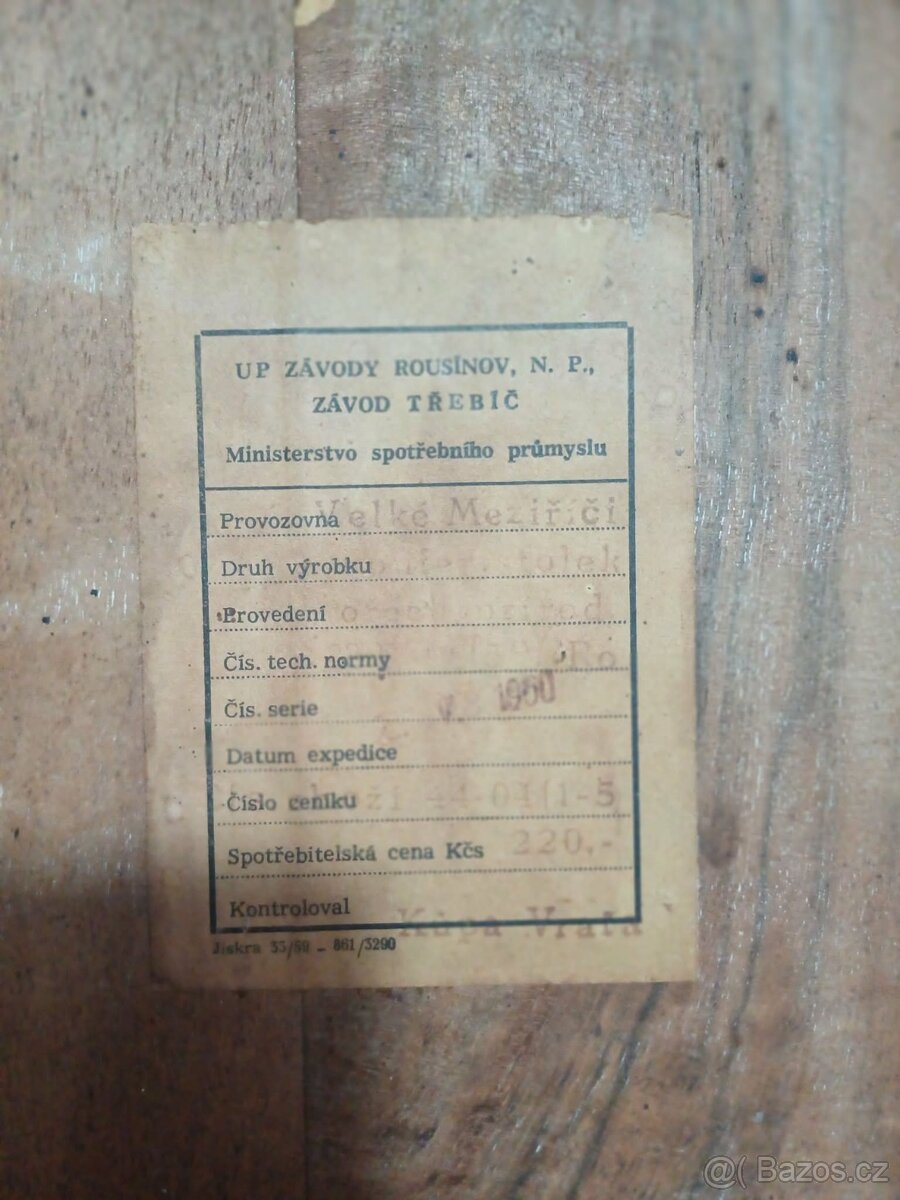 UP ZÁVODY ROUSÍNOV, N. P.,
ZÁVOD TŘEBÍČ
Ministerstvo spotřebního průmyslu
Provozovna Velké Meziříčí
Druh výrobku
Provedení
Čís. tech. normy
Čís. serie V. 1960
Datum expedice
Číslo ceníku 44-04/1-5
Spotřebitelská cena Kčs 220,-
Kontroloval Kůpa Vráťa
Jiskra 33/59 - 861/3290
@( Bazos.cz